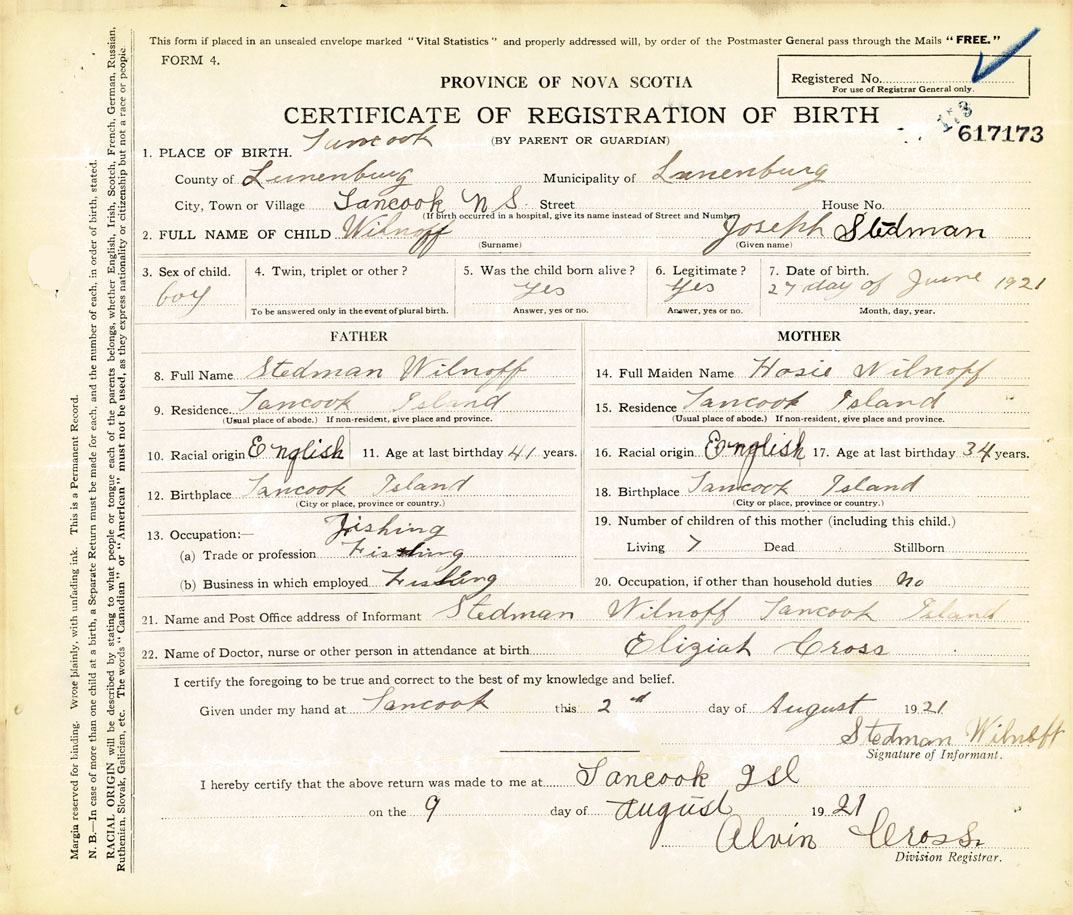 This form if placed in an unsealed envelope marked "Vital Statistics" and properly addressed will, by order of the Postmaster General pass through the Mails "FREE."
FORM 4.
PROVINCE OF NOVA SCOTIA
Registered No.
For use of Registrar General only.
CERTIFICATE OF REGISTRATION OF BIRTH
173
617173
(BY PARENT OR GUARDIAN)
1. PLACE OF BIRTH. Tancook
County of Lunenburg Municipality of Lunenburg
City, Town or Village Tancook N S. Street House No.
(If birth occurred in a hospital, give its name instead of Street and Number)
2. FULL NAME OF CHILD Wilnoff Joseph Stedman
(Surname) (Given name)
3. Sex of child. 4. Twin, triplet or other? 5. Was the child born alive? 6. Legitimate? 7. Date of birth.
boy yes yes 27 day of Juine 1921
To be answered only in the event of plural birth. Answer, yes or no. Answer, yes or no. Month, day, year.
FATHER MOTHER
8. Full Name Stedman Wilnoff 14. Full Maiden Name Hosie Wilnoff
9. Residence Tancook Island 15. Residence Tancook Island
(Usual place of abode.) If non-resident, give place and province. (Usual place of abode.) If non-resident, give place and province.
10. Racial origin English 11. Age at last birthday 41 years. 16. Racial origin English 17. Age at last birthday 34 years.
12. Birthplace Tancook Island 18. Birthplace Tancook Island
(City or place, province or country.) (City or place, province or country.)
13. Occupation:— Fishing 19. Number of children of this mother (including this child.)
(a) Trade or profession Fishing Living 7 Dead Stillborn
(b) Business in which employed Fishing 20. Occupation, if other than household duties no
21. Name and Post Office address of Informant Stedman Wilnoff Tancook Island
22. Name of Doctor, nurse or other person in attendance at birth Eliziah Cross
I certify the foregoing to be true and correct to the best of my knowledge and belief.
Given under my hand at Tancook this 2nd day of August 1921
Stedman Wilnoff
Signature of Informant.
I hereby certify that the above return was made to me at Tancook Isl
on the 9 day of August 1921
Alvin Cross.
Division Registrar.
Margin reserved for binding. Wrote plainly, with unfading ink. This is a Permanent Record.
N. B.—In case of more than one child at a birth, a Separate Return must be made for each, and the number of each, in order of birth, stated.
RACIAL ORIGIN will be described by stating to what people or tongue each of the parents belongs, whether English, Irish, Scotch, French, German, Russian,
Ruthenian, Slovak, Galician, etc. The words "Canadian" or "American" must not be used, as they express nationality or citizenship but not a race or people